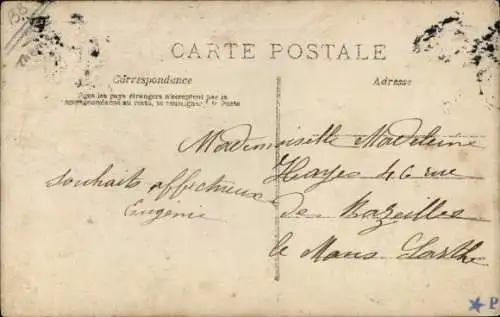 CARTE POSTALE
Correspondance
Adresse
Tous les pays étrangers n'acceptent pas la
correspondance au recto, se renseigner à la Poste
Mademoiselle Madeleine
Hayes 46 rue
de Bazeilles
le Mans Sarthe
souhaits affectueux
Eugenie
P